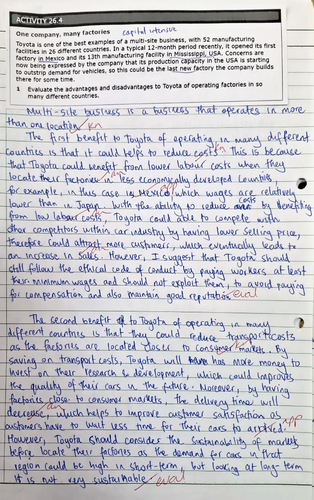 ACTIVITY 26.4
One company, many factories capital intensive
Toyota is one of the best examples of a multi-site business, with 52 manufacturing
facilities in 26 different countries. In a typical 12-month period recently, it opened its first
factory in Mexico and its 13th manufacturing facility in Mississippi, USA. Concerns are
now being expressed by the company that its production capacity in the USA is starting
to outstrip demand for vehicles, so this could be the last new factory the company builds
there for some time.
1 Evaluate the advantages and disadvantages to Toyota of operating factories in so
many different countries.
Multi-site business is a business that operates in more
than one location. kn
The first benefit to Toyota of operating in many different
countries is that it could helps to reduce costs. This is because
that Toyota could benefit from lower labour costs when they
locate their factories in less economically developed countries,
for example, in this case is Mexico app which wages are relatively
lower than in Japan. With the ability to reduce costs by benefiting
from low labour costs, Toyota could able to compete with
other competitors within car industry by having lower selling price,
therefore could attract more customers, which eventually leads to
an increase in sales. However, I suggest that Toyota should
still follow the ethical code of conduct by paying workers at least
their minimum wages and should not exploit them, to avoid paying
for compensation and also maintain good reputation. eval
The second benefit to Toyota of operating in many
different countries is that they could reduce transport costs
as the factories are located close to consumer markets. By
saving on transport costs, Toyota will have more money to
invest on their research & development, which could improves
the quality of their cars in the future. Moreover, by having
factories close to consumer markets, the delivery time will
decrease, which helps to improve customer satisfaction as
customers have to wait less time for their cars to arrived. app
However, Toyota should consider the sustainability of markets
before locate their factories as the demand for cars in that
region could be high in short-term, but looking at long-term
it is not very sustainable. eval